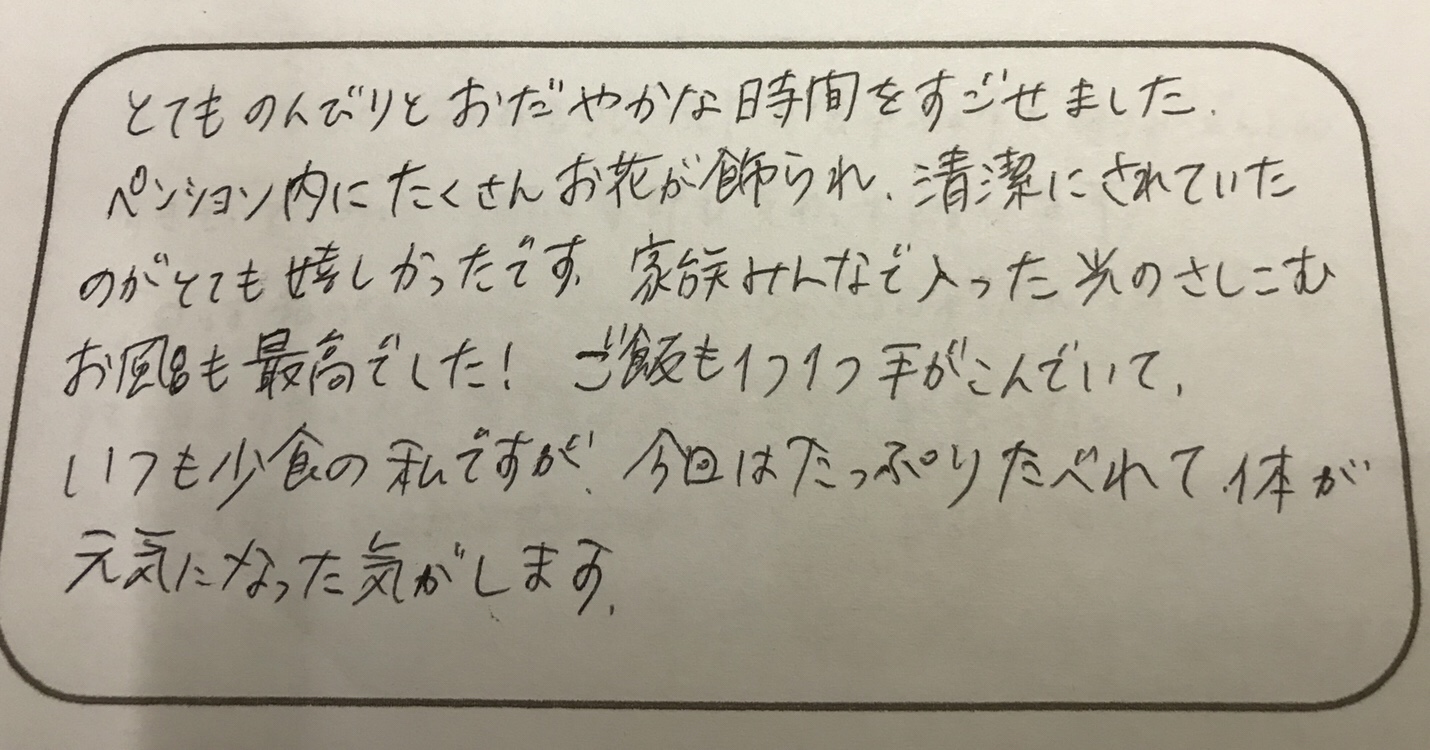 とてものんびりとおだやかな時間をすごせました.
ペンション内にたくさんお花が飾られ、清潔にされていた
のがとても嬉しかったです。家族みんなで入った光のさしこむ
お風呂も最高でした! ご飯も1つ1つ手がこんでいて、
いつも少食の私ですが、今回はたっぷりたべれて、体が
元気になった気がします。